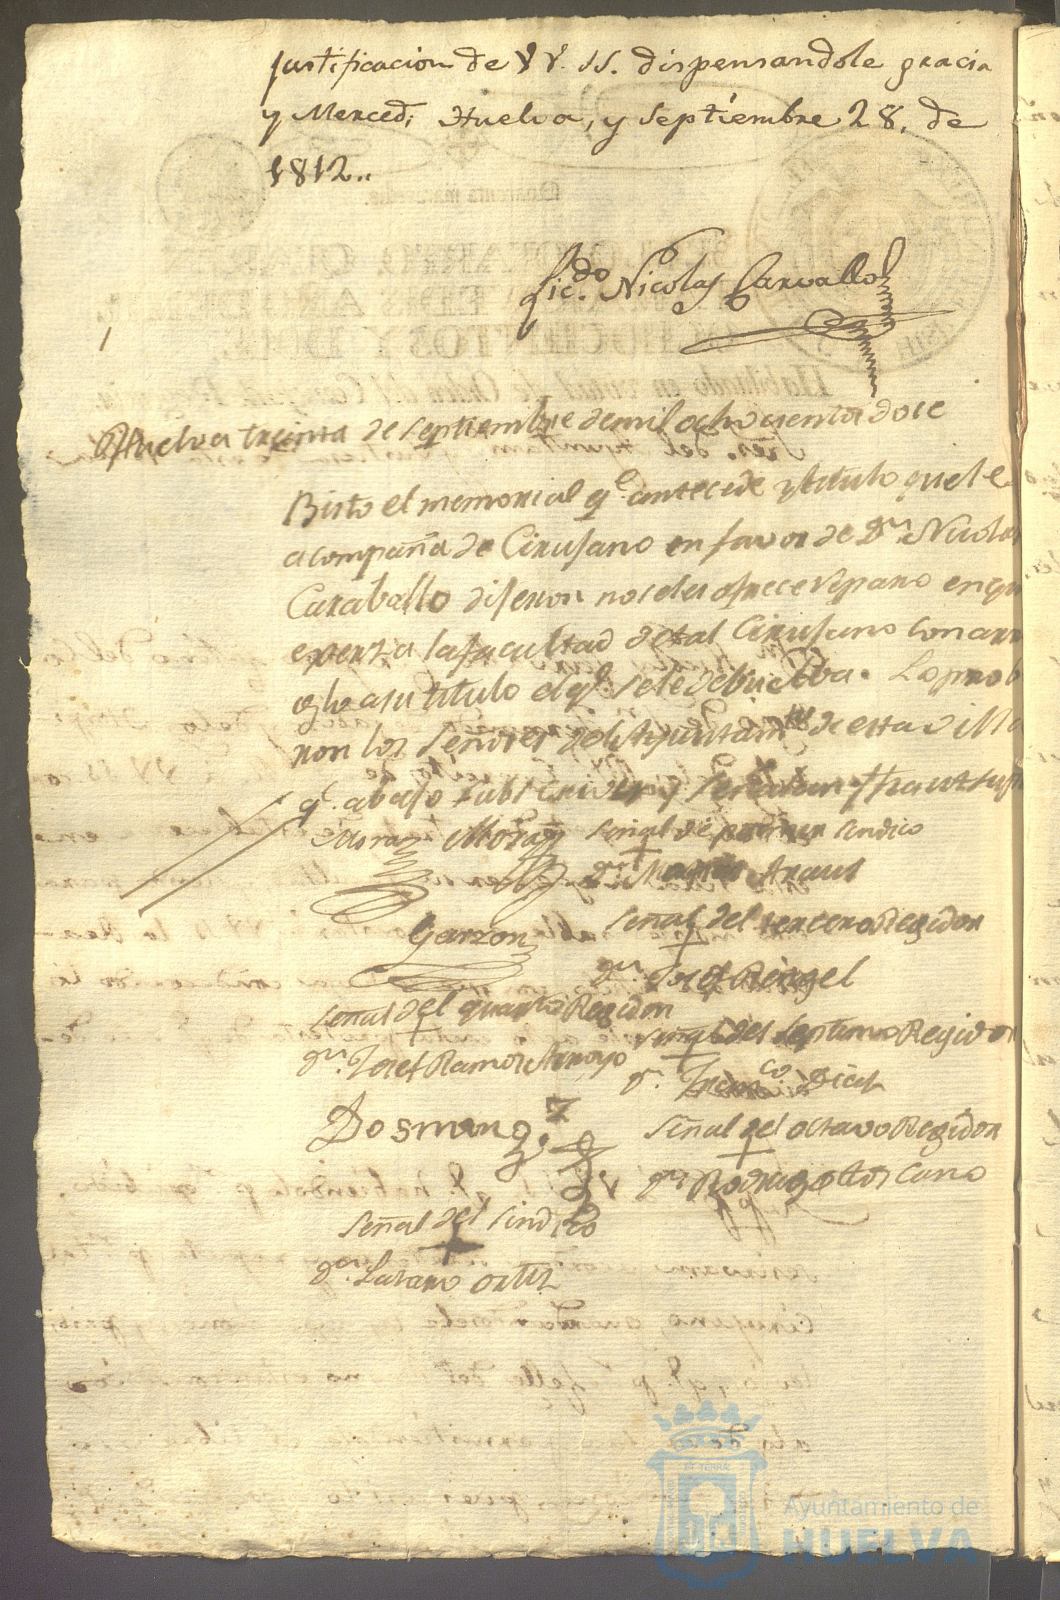 justificacion de VV. SS. dispensandole gracia
y Merced; Huelva, y septiembre 28, de
1812..
Licdo. Nicolas Carvallo
Huelva treinta de septiembre de mil ochocientos doce
Bisto el memorial qe. antecede y titulo que le
acompaña de Cirujano en favor de Dn. Nicolas
Caraballo dijeron no se les ofrece reparo en que
exerza la facultad de tal Cirujano con arre
glo a su titulo el qe. se le debuelba. Lo prob
ron los Señores del Ayuntamto. de esta villa
qe. abajo subscriven y señalan
Garzon
señal de primer sindico
Dn. Martin Araus
señal del tercero Regidor
Dn. Josef Rengel
señal del quarto Regidor
Dn. Josef Ramos Arroyo
señal del septimo Regidor
Dn. Franco. Diaz
Dosminguez
señal del octavo Regidor
Dn. Rodrigo
señal del sindico
Dn. Lazaro Ortiz
Ayuntamiento de
HUELVA